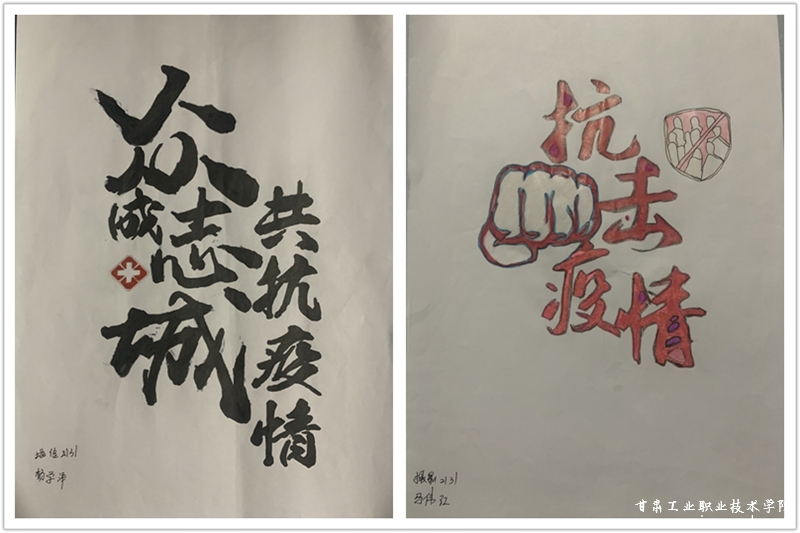 众志成城
共抗疫情
2131
抗击疫情
2131
甘肃工业职业技术学院